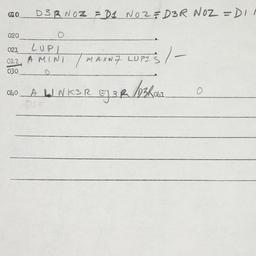 010 D3RNOZ = D1 NOZ = D3R NOZ = D1
020 O
021 LUPI
022 A MINI / MAXN7 LUPIS /-
030 O
040 A LINK3R EJ3R /D3R 042 O